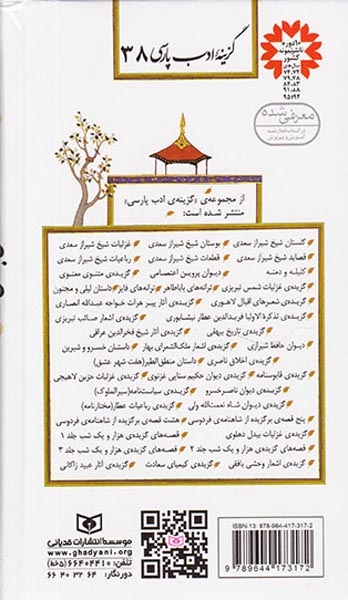 گزینهٔ ادب پارسی ۳۸
۱۰ دوره
ناشر نمونه
کشور
سال‌های
۷۴،۷۲
۷۹،۷۸
۸۴،۸۳
۹۱،۸۸
۹۵،۹۴
معرفی شده
از مجموعه‌ی «گزینه‌ی ادب پارسی»
منتشر شده است:
گلستان شیخ شیراز سعدی بوستان شیخ شیراز سعدی غزلیات شیخ شیراز سعدی
قصاید شیخ شیراز سعدی قطعات شیخ شیراز سعدی رباعیات شیخ شیراز سعدی
کلیله و دمنه دیوان پروین اعتصامی گزیده‌ی مثنوی معنوی
گزیده‌ی غزلیات شمس تبریزی ترانه‌های باباطاهر ترانه‌های فایز داستان لیلی و مجنون
گزیده‌ی شعرهای اقبال لاهوری گزیده‌ی آثار پیر هرات خواجه عبدالله انصاری
گزیده‌ی تذکرة الاولیا فریدالدین عطار نیشابوری گزیده‌ی اشعار صائب تبریزی
گزیده‌ی تاریخ بیهقی گزیده‌ی آثار شیخ فخرالدین عراقی
دیوان حافظ شیرازی گزیده‌ی اشعار ملک‌الشعرای بهار داستان خسرو و شیرین
گزیده‌ی اخلاق ناصری داستان منطق‌الطیر(هفت شهر عشق)
گزیده‌ی قابوسنامه گزیده‌ی دیوان حکیم سنایی غزنوی گزیده‌ی غزلیات حزین لاهیجی
گزیده‌ی دیوان ناصرخسرو گزیده‌ی سیاست‌نامه(سیرالملوک)
گزیده‌ی دیوان شاه نعمت‌الله ولی گزیده‌ی رباعیات عطار(مختارنامه)
پنج قصه‌ی برگزیده از شاهنامه‌ی فردوسی هشت قصه‌ی برگزیده از شاهنامه‌ی فردوسی
گزیده‌ی غزلیات بیدل دهلوی قصه‌های گزیده‌ی هزار و یک شب جلد ۱
قصه‌های گزیده‌ی هزار و یک شب جلد ۲ قصه‌های گزیده‌ی هزار و یک شب جلد ۳
گزیده‌ی اشعار وحشی بافقی گزیده‌ی کیمیای سعادت گزیده‌ی آثار عبید زاکانی
موسسه انتشارات قدیانی
www.ghadyani.org
تلفن: ۶۶۴۰۴۴۱۰ (۵خط)
دورنگار: ۶۶۴۰۳۲۶۴
ISBN-13: 978-964-417-317-2
9 789644 173172